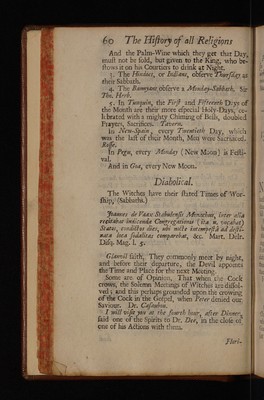 60 The History of all Religions
And the Palm-Wine which they get that Day,
must not be sold, but given to the King, who be-
stows it on his Courtiers to drink at Night.
3. The Hindoes, or Indians, observe Thursday as
their Sabbath.
4. The Baneyans observe a Monday-Sabbath. Sir
Tho. Herb.
5. In Tunquin, the First and Fifteenth Days of
the Month are their more especial Holy-Days, ce-
lebrated with a mighty Chiming of Bells, doubled
Prayers, Sacrifices. Tavern.
In New-Spain, every Twentieth Day, which
was the last of their Month, Men were Sacrificed.
Rosse.
In Pegu, every Monday (New Moon) is Festi-
val.
And in Goa, every New Moon.
Diabolical.
The Witches have their stated Times of Wor-
ship, (Sabbaths.)
Joannes de Vaux Stabulensis Monachus, inter alia
regiones
Status, conductus dies, ubi nocte intempesta ad desti-
nata loca sodalitas comparebat, &c. Mart. Delr.
Disq. Mag. l. 5.
Glanvil saith, They commonly meet by night,
and before their departure, the Devil appoints
the Time and Place for the next Meeting.
Some are of Opinion, That when the Cock
crows, the Solemn Meetings of Witches are dissol-
ved; and this perhaps grounded upon the crowing
of the Cock in the Gospel, when Peter denied our
Saviour. Dr. Casaubon.
I will visit you at the fourth hour, after Dinner,
said one of the Spirits to Dr. Dee, in the close of
one of his Actions with them.